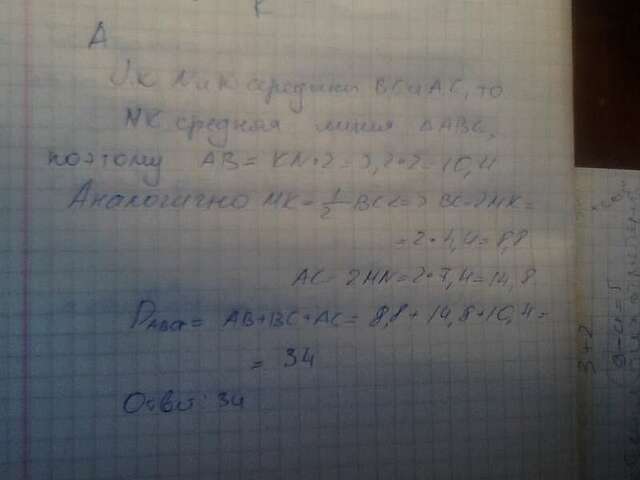 Д
т.к N и К середины BC и AC, то
NK средняя линия ΔABC,
поэтому AB = KN*2 = 5,2*2 = 10,4
Аналогично MK = 1/2 BC => BC = 2MK =
= 2*4,4 = 8,8
AC = 2MN = 2*7,4 = 14,8
PABC = AB+BC+AC = 8,8+14,8+10,4 =
= 34
Ответ: 34
3+2